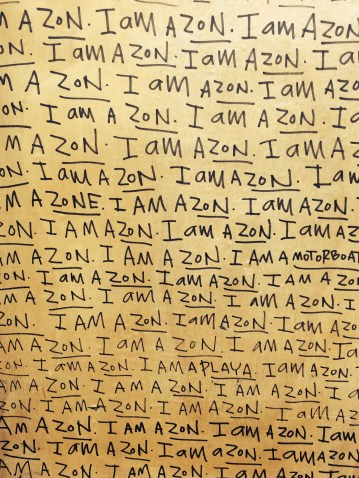 M A ZON. I am A ZON. I am A ZON
ON. I am A ZON. I am A ZON. I am
M A ZON. I am AZON. I am AZON
ON. I am A ZON. I am A ZON. I
M A ZON. I am A ZON. I am A
ON. I am A ZON. I am A ZON. I am
M A ZONE. I AM A ZON. I am A ZON. I
ZON. I AM A ZON. I am A ZON. I am A Z
AM A ZON. I AM A ZON. I AM A MOTORBOAT
ON. I am A ZON. I am A ZON. I AM A ZO
AM A ZON. I am A ZON. I am A ZON. I
ZON. I AM A ZON. I am A ZON. I AM A
AM A ZON. I am A ZON. I am A ZON. I am
ZON. I am A ZON. I AM A PLAYA. I am A ZON.
AM A ZON. I AM A ZON. I am A ZON. I am
ZON. I AM A ZON. I AM A ZON. I am A
AM A ZON. I am A ZON. I am A ZON. I am
ZON. I am A ZON. I am a ZON. I am A
AM A ZON. I AM A ZON. I AM A ZON. I